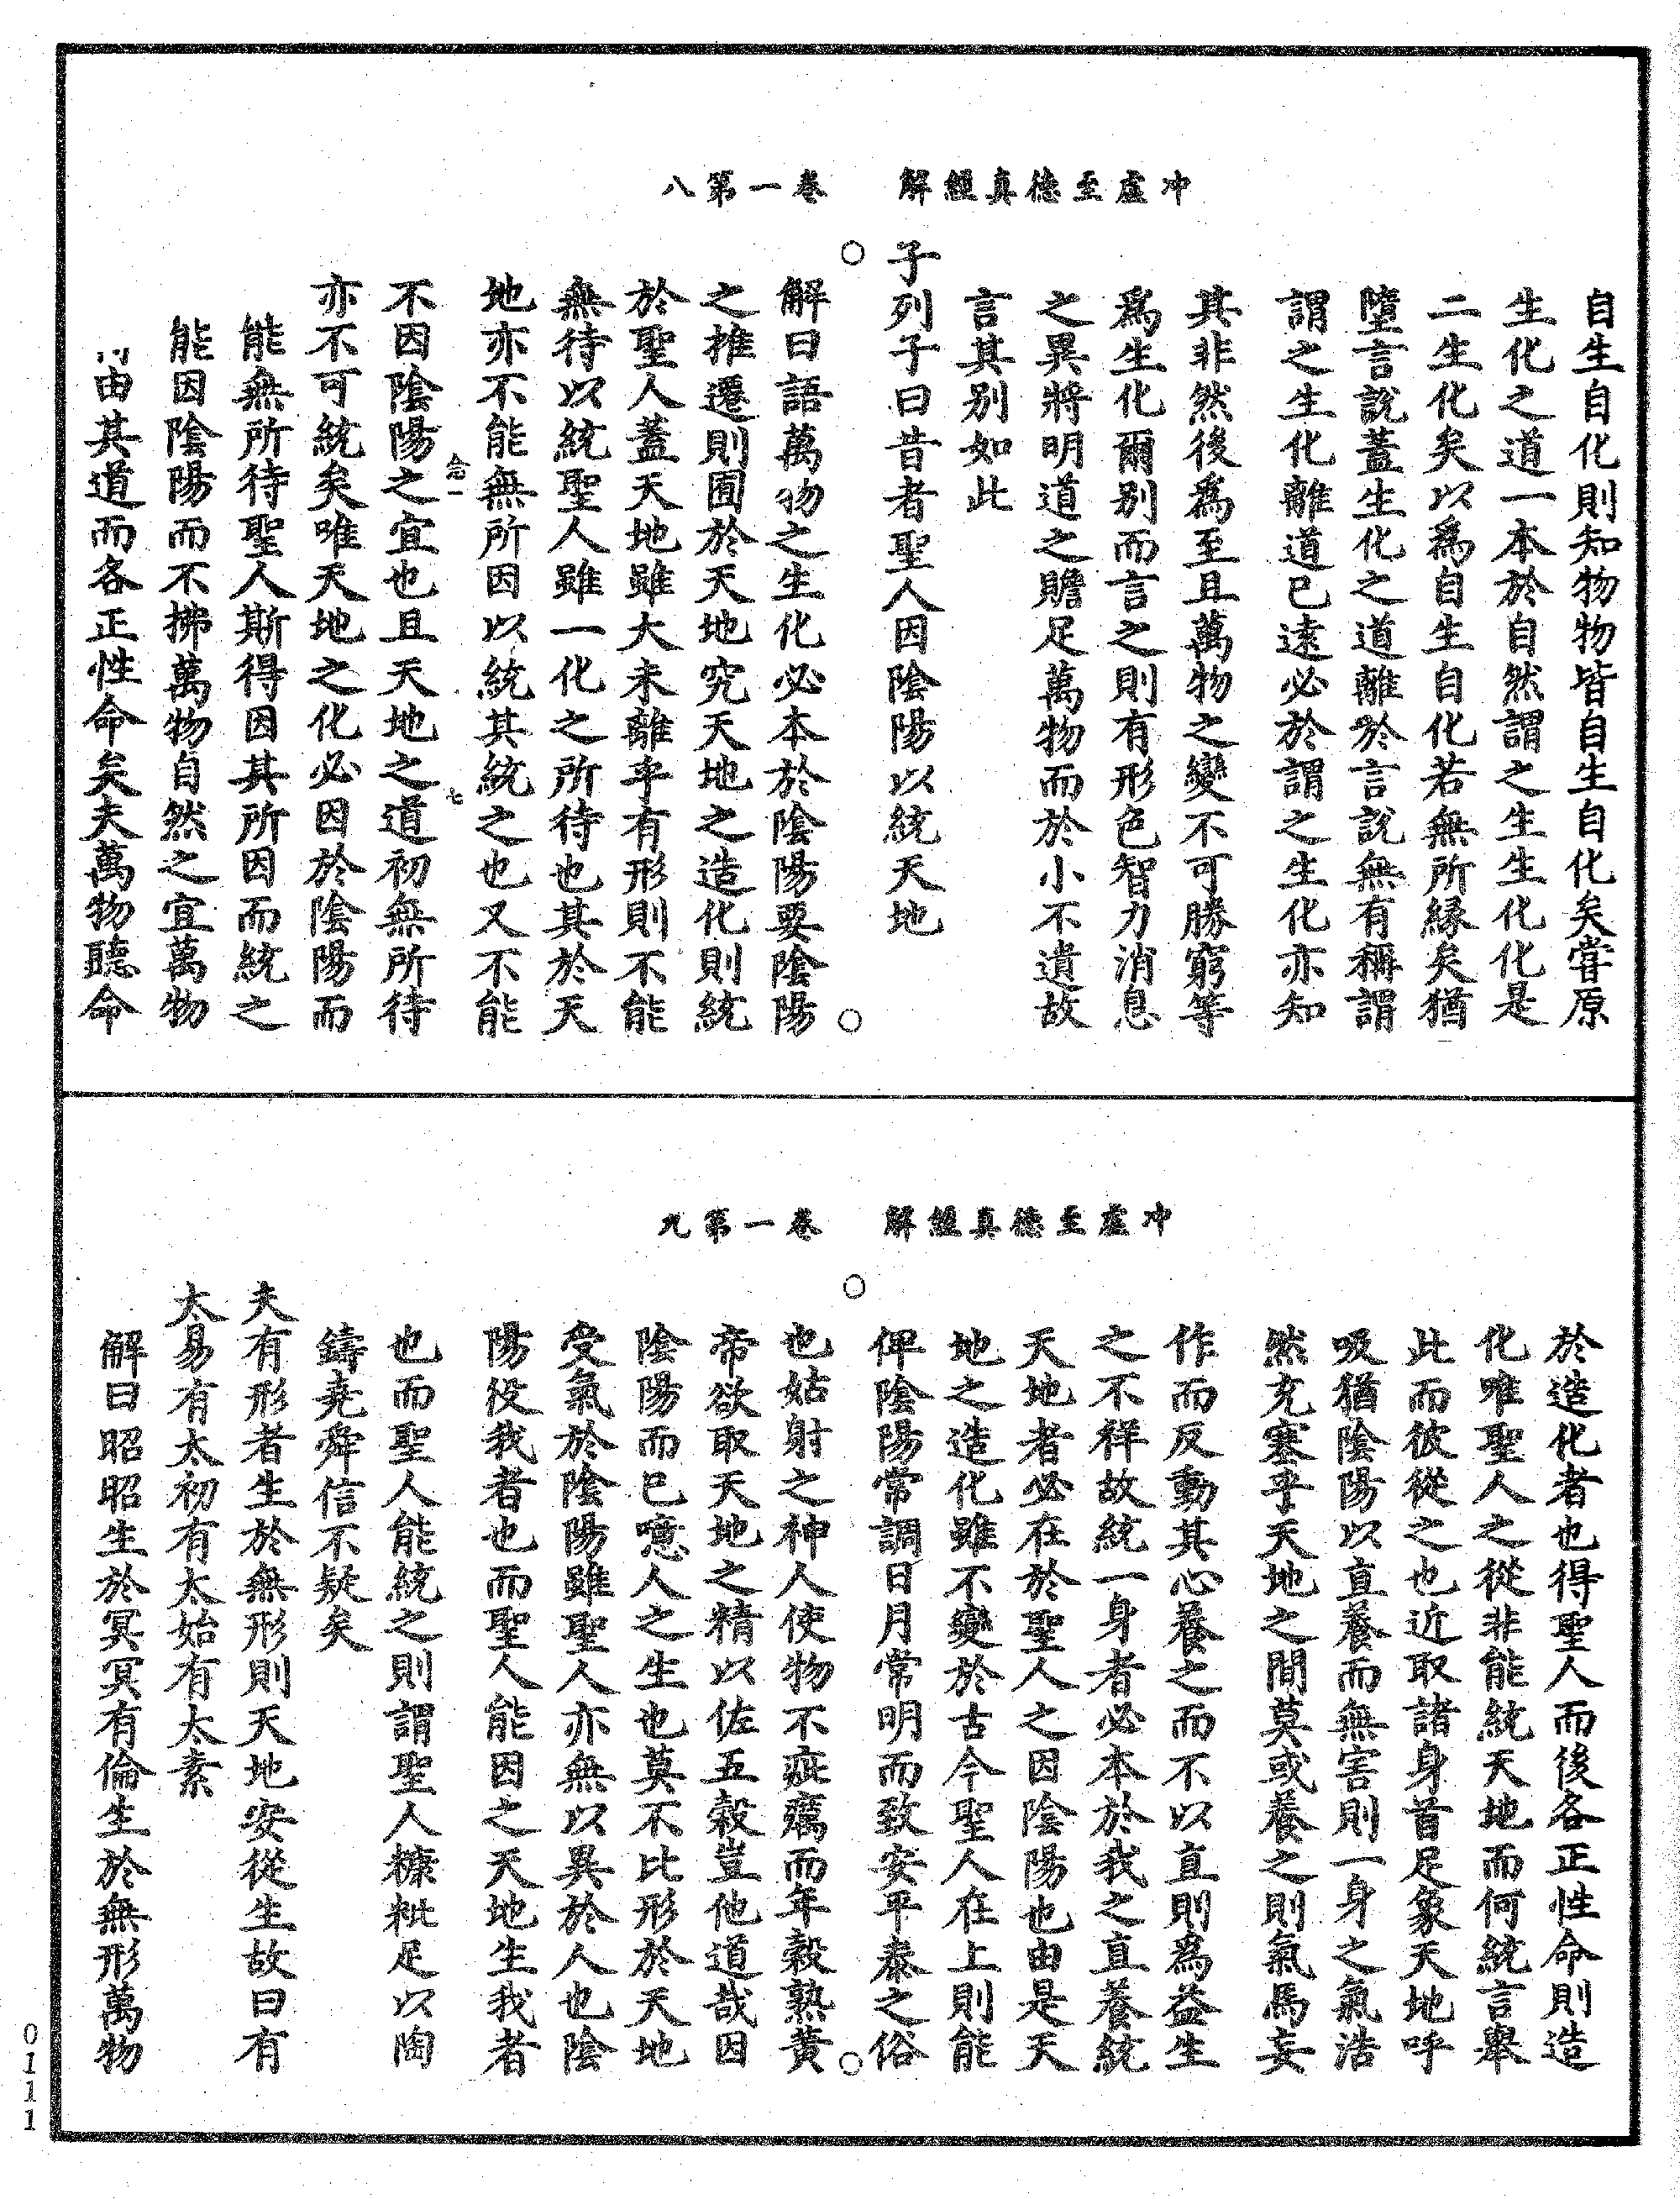 冲虛至德真經解　卷一第八
自生自化則知物物皆自生自化矣嘗原
生化之道一本於自然謂之生生化化是
二生化矣以為自生自化若無所緣矣猶
墮言說蓋生化之道離於言說無有稱謂
謂之生化離道已遠必於謂之生化亦知
其非然後為至且萬物之變不可勝窮等
為生化爾別而言之則有形色智力消息
之異將明道之贍足萬物而於小不遺故
言其別如此
子列子曰昔者聖人因陰陽以統天地
解曰語萬物之生化必本於陰陽要陰陽
之推遷則囿於天地究天地之造化則統
於聖人蓋天地雖大未離乎有形則不能
無待以統聖人雖一化之所待也其於天
地亦不能無所因以統其統之也又不能
念一　七
不因陰陽之宜也且天地之道初無所待
亦不可統矣唯天地之化必因於陰陽而
能無所待聖人斯得因其所因而統之
能因陰陽而不拂萬物自然之宜萬物
由其道而各正性命矣夫萬物聽命
冲虛至德真經解　卷一第九
於造化者也得聖人而後各正性命則造
化唯聖人之從非能統天地而何統言舉
此而彼從之也近取諸身首足象天地呼
吸猶陰陽以直養而無害則一身之氣浩
然充塞乎天地之間莫或養之則氣馬妄
作而反動其心養之而不以直則為益生
之不祥故統一身者必本於我之直養統
天地者必在於聖人之因陰陽也由是天
地之造化雖不變於古今聖人在上則能
俾陰陽常調日月常明而致安平泰之俗
也姑射之神人使物不疵癘而年穀熟黃
帝欲取天地之精以佐五穀豈他道哉因
陰陽而已噫人之生也莫不比形於天地
受氣於陰陽雖聖人亦無以異於人也陰
陽役我者也而聖人能因之天地生我者
也而聖人能統之則謂聖人糠粃足以陶
鑄堯舜信不疑矣
夫有形者生於無形則天地安從生故曰有
太易有太初有太始有太素
解曰昭昭生於冥冥有倫生於無形萬物
0111